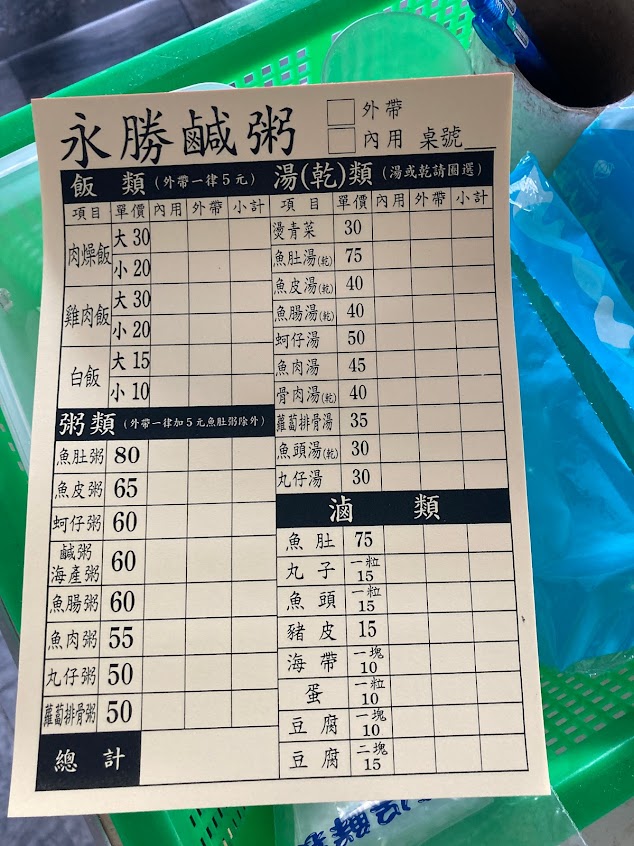 永勝鹹粥
外帶
內用 桌號
飯類(外帶一律5元)
項目 單價 內用 外帶 小計
肉燥飯 大30
小20
雞肉飯 大30
小20
白飯 大15
小10
粥類(外帶一律加5元,魚肚粥除外)
魚肚粥 80
魚皮粥 65
蚵仔粥 60
鹹粥
海產粥 60
魚腸粥 60
魚肉粥 55
丸仔粥 50
蘿蔔排骨粥 50
總計
湯(乾)類(湯或乾請圈選)
項目 單價 內用 外帶 小計
燙青菜 30
魚肚湯(乾) 75
魚皮湯(乾) 40
魚腸湯(乾) 40
蚵仔湯 50
魚肉湯 45
骨肉湯(乾) 40
蘿蔔排骨湯 35
魚頭湯(乾) 30
丸仔湯 30
滷類
魚肚 75
丸子 一粒15
魚頭 一粒15
豬皮 15
海帶 一塊10
蛋 一粒10
豆腐 一塊10
豆腐 二塊15